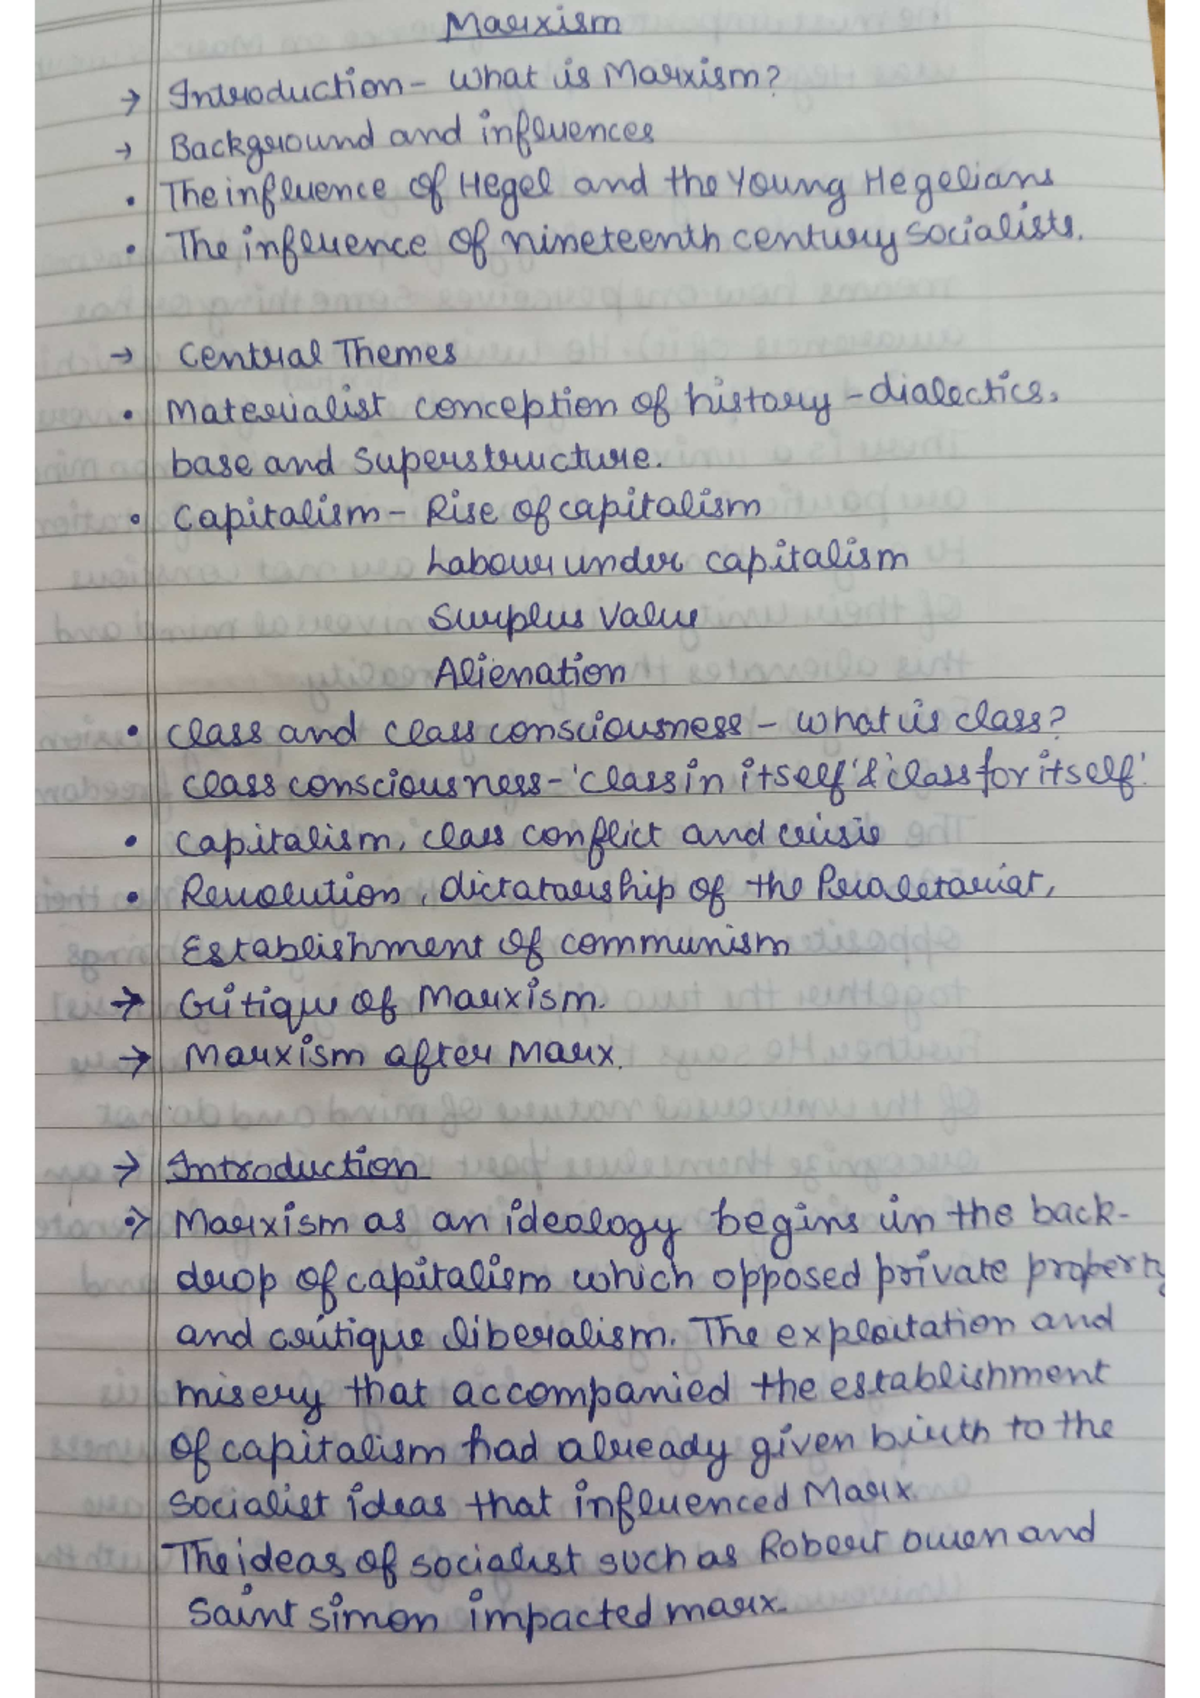 Marxism
→ Introduction - what is Marxism?
→ Background and influences
• The influence of Hegel and the Young Hegelians
• The influence of nineteenth century socialists.
→ Central Themes
• Materialist conception of history - dialectics,
base and superstructure.
• Capitalism - Rise of capitalism
Labour under capitalism
Surplus Value
Alienation
• Class and class consciousness - what is class?
class consciousness - 'class in itself' & 'class for itself'.
• Capitalism, class conflict and crisis
• Revolution, dictatorship of the Proletariat,
Establishment of communism
→ Critique of Marxism.
→ Marxism after Marx.
→ Introduction
•> Marxism as an ideology begins in the back-
drop of capitalism which opposed private property
and critique liberalism. The exploitation and
misery that accompanied the establishment
of capitalism had already given birth to the
socialist ideas that influenced Marx.
The ideas of socialist such as Robert owen and
Saint simon impacted marx.